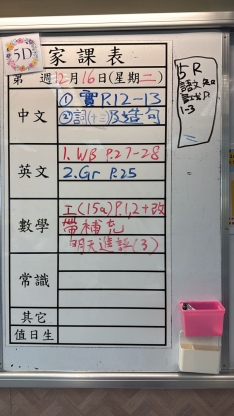 5D
家課表
第 週12月16日(星期二)
中文
① 寶 P.12-13
②詞(十三)及造句
英文
1. WB P.27-28
2. Gr P.25
數學
工(15a)P.1,2+改
帶補充
明天進評(3)
常識
其它
值日生
5R
語文
1-3